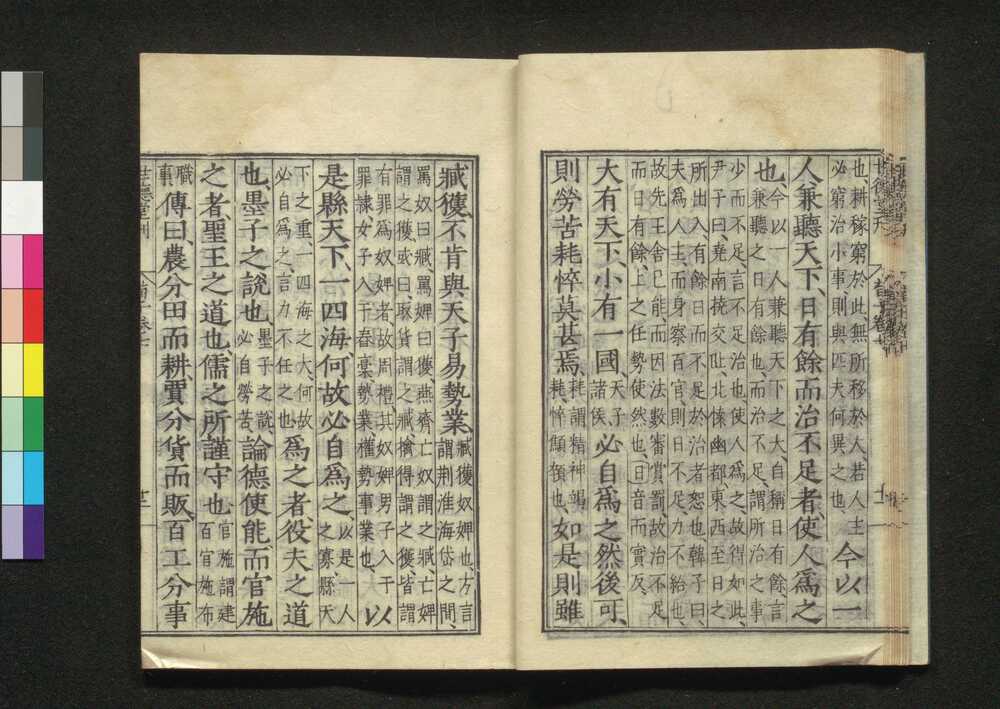 也、耕稼窮於此、無所移於人、若人主
必窮治小事則與匹夫何異之也
今以一
人兼聽天下、日有餘而治不足者、使人爲之
也、
今以一人兼聽天下之大自稱日有餘言
兼聽之日有餘也、而治不足、謂所治之事
少而不足、言不足治也使人爲之、故得如此、
尹子曰堯南撫交阯、北懷幽都東西至日之
所出入有餘日而不足於治者恕也韓子曰、
夫爲人主而身察百官、則日不足、力不給也、
故先王舍己能而因法數審賞罰故治不足
而日有餘、上之任勢使然也、日音而實反、
大有天下、小有一國、
天子
諸侯
必自爲之然後可、
則勞苦耗悴莫甚焉、
耗謂精神竭
耗、悴顦顇也、
如是則雖
臧獲不肯與天子易勢業、
臧獲奴婢也、方言
謂荆淮海岱之間、
罵奴曰臧、罵婢曰獲燕齊亡奴謂之臧亡婢
謂之獲、或曰取貨謂之臧擒得謂之獲皆謂
有罪爲奴婢者故周禮其奴婢男子入于
罪隷、女子入于舂稾勢業、權勢事業也、
以
是縣天下、一四海何故必自爲之、
以是一人
之寡縣天
下之重、一四海之大、何故
必自爲之、言力不任之也
爲之者役夫之道
也、墨子之說也、
墨子之說
必自勞苦
論德使能而官施
之者、聖王之道也、儒之所謹守也
官施謂建
百官施布
職
事
傳曰、農分田而耕、賈分貨而販、百工分事